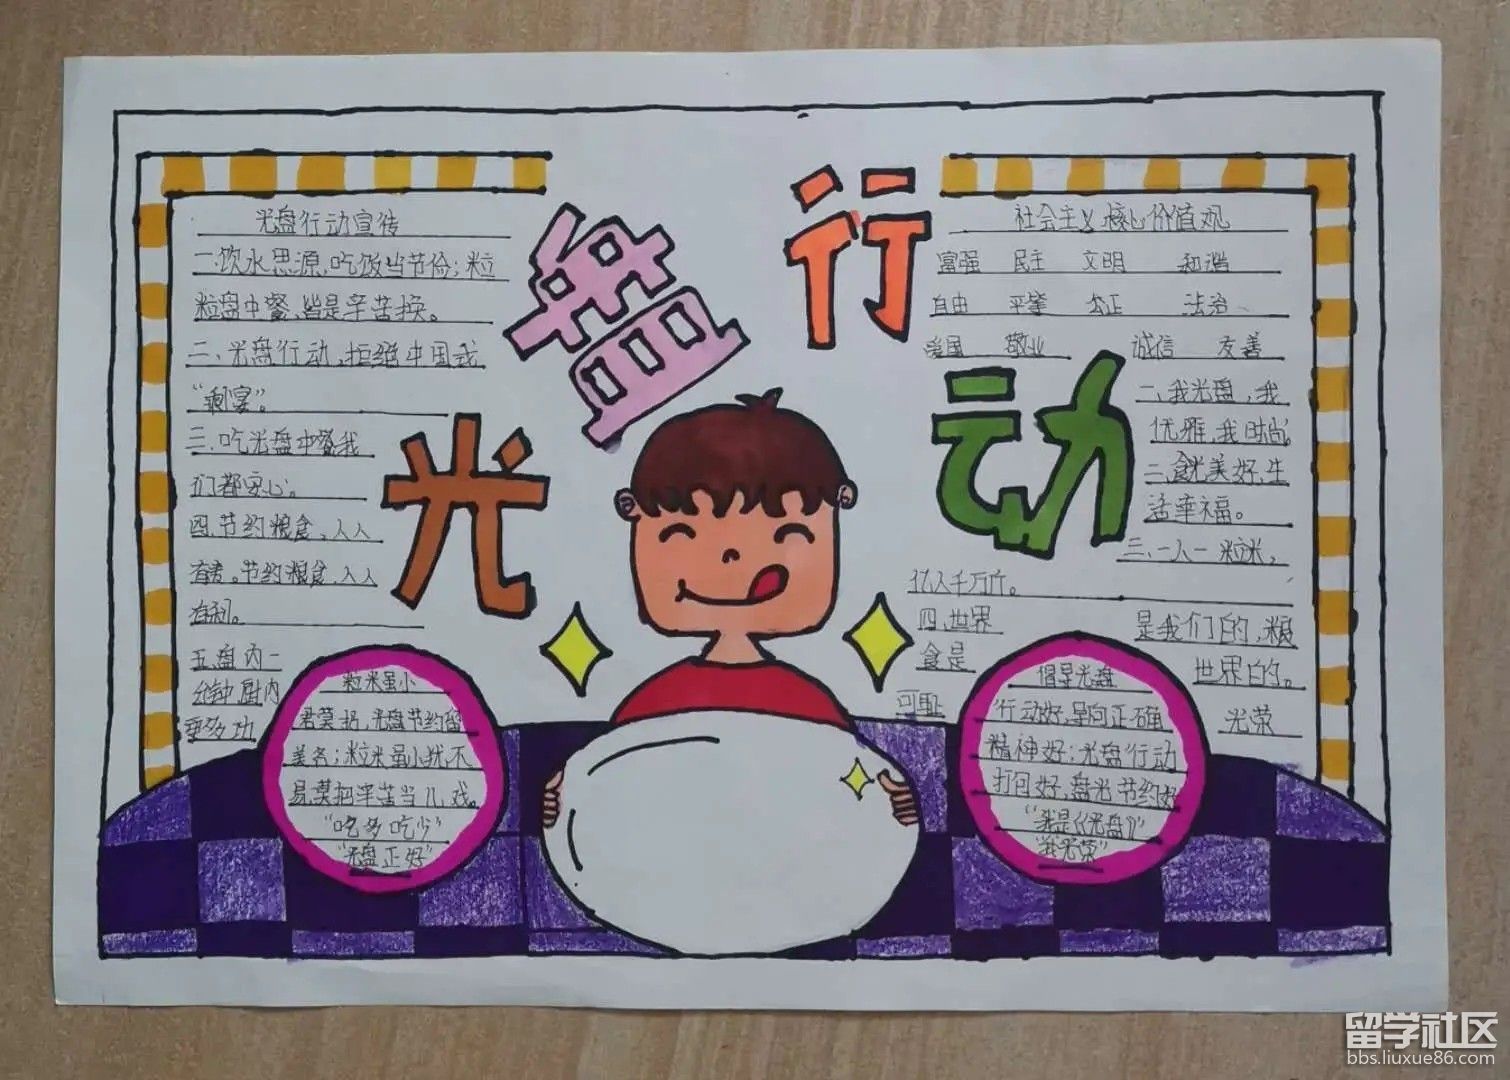 光盘行动
光盘行动宣传
一.饮水思源,吃饭当节俭;粒
粒盘中餐,皆是辛苦换。
二、光盘行动,拒绝中国式
"剩宴"。
三.吃光盘中餐我
们都安心。
四.节约粮食,人人
有责。节约粮食,人人
有利。
五.盘内一
分钟,厨内
更多功
粒米虽小
君莫扔,光盘节约留
美名;粒米虽小犹不
易,莫把辛苦当儿戏。
"吃多吃少"
"光盘正好"
社会主义核心价值观
富强 民主 文明 和谐
自由 平等 公正 法治、
爱国 敬业 诚信 友善
一、我光盘,我
优雅,我时尚。
二、食光美好,生
活幸福。
三、一人一粒米,
亿人千万斤。
四.世界是我们的,粮
食是世界的。
可耻 光荣
倡呈光盘
行动好,导向正确
精神好;光盘行动
打包好,盘光节约好
"我是《光盘》"
"我光荣"
留学社区
bbs.liuxue86.com